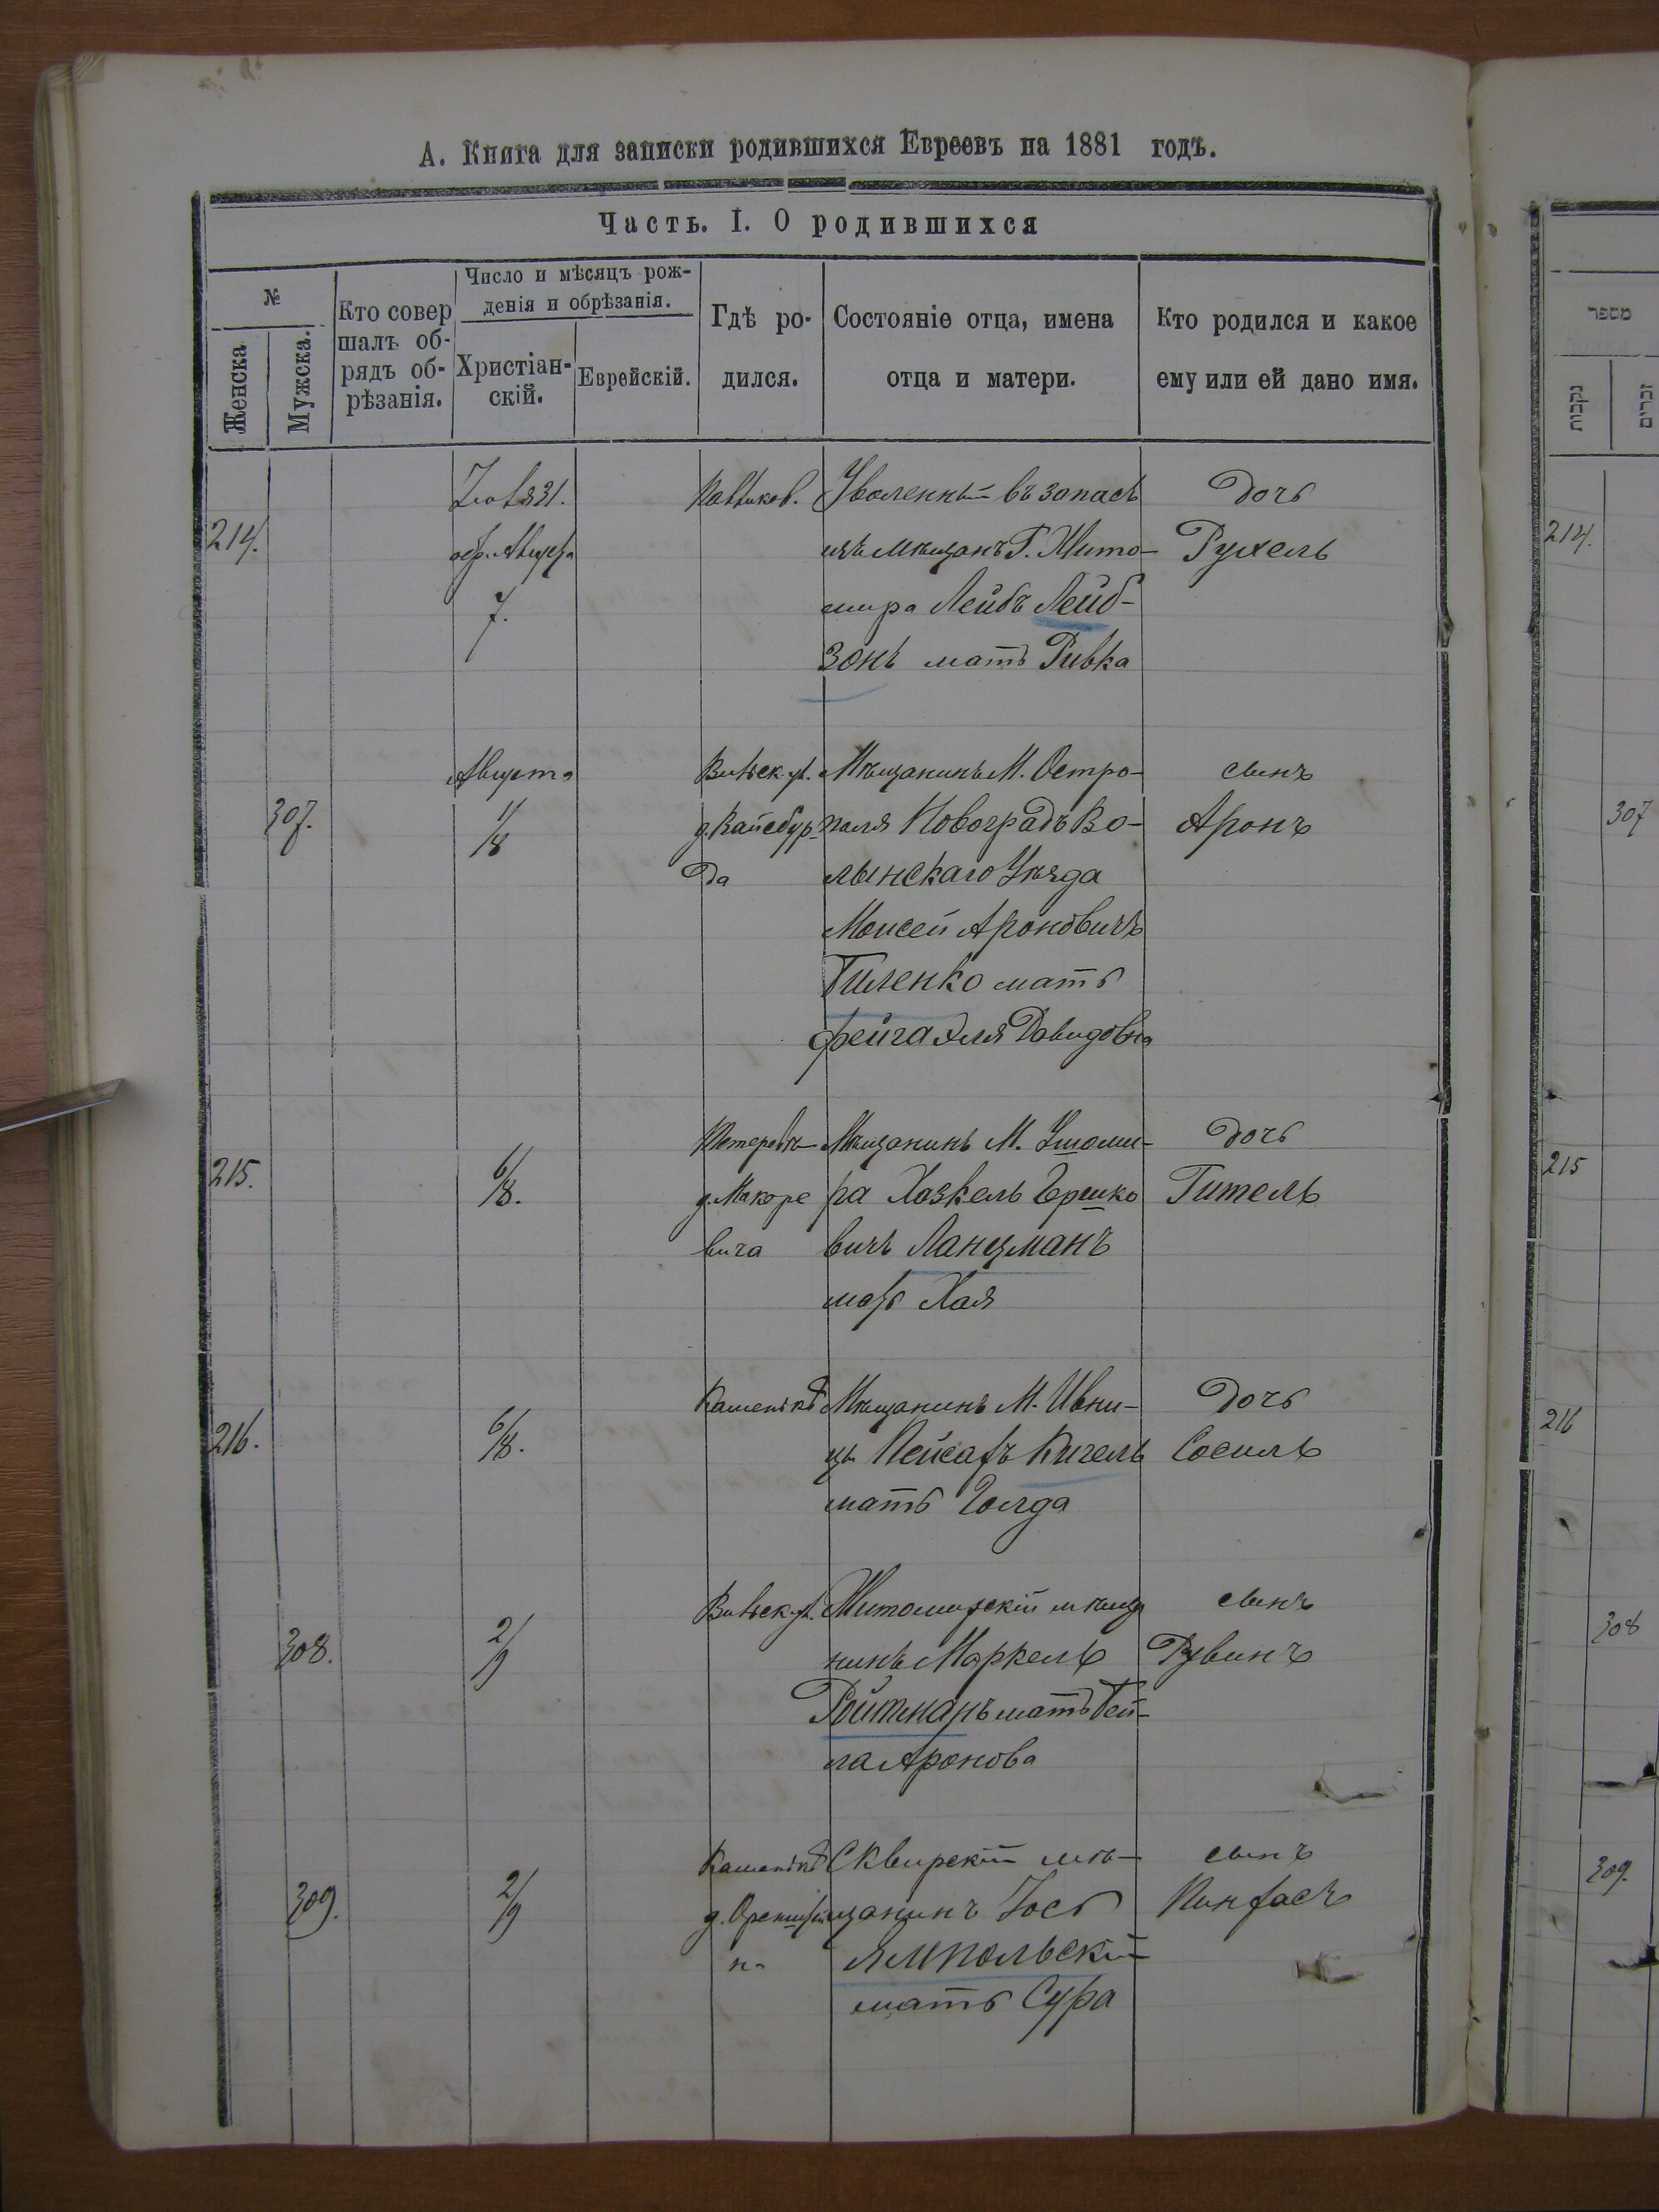 А. Книга для записки родившихся Евреевъ на 1881 годъ.
Часть. I. О родившихся
№
Женска
Мужска.
Кто совер
шалъ об-
рядъ об-
рѣзанія.
Число и мѣсяцъ рож-
денія и обрѣзанія.
Христіан-
скій.
Еврейскій.
Гдѣ ро-
дился.
Состояніе отца, имена
отца и матери.
Кто родился и какое
ему или ей дано имя.
214.
31.
7.
Уволенный въ запасъ
изъ мѣщанъ Г. Жито-
мира Лейбъ Лейб-
зонъ мать Ривка
Дочь
Рухель
307.
Августа
1/8
д. Вайсбур-
да
Мѣщанинъ М. Остро-
поля Новоградъ Во-
лынскаго Уѣзда
Моисей Ароновичъ
Гиленко мать
Фейга Эля Давидовна
сынъ
Аронъ
215.
6/8.
д. Макаре
вича
Мѣщанинъ М. Ушоми-
ра Хаскель Гершко
вичъ Ланцманъ
мать Хая
Дочь
Гитель
216.
6/8.
Мѣщанинъ М. Ивни-
цы Пейсахъ Кигель
мать Голда
Дочь
Сосиль
308.
2/9
Житомирскій мѣща
нинъ Маркель
Ройтманъ мать Бей-
ла Аронова
сынъ
Рувинъ
309.
2/9
Сквирскій мѣ-
щанинъ Іось
Ямпольскій
мать Сура
сынъ
Пинхасъ
מספר
נקבות
זכרים
214.
307
215
216
308
309.